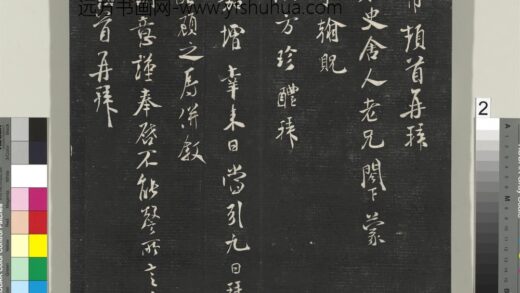 远方书画网-www.yfshuhua.com
頓首再拜
史舍人老兄閣下蒙
翰貺
方珍醴拜
幸来日當引九日拜
顧之辱併敘
意謹奉啓不能盡所言
首再拜
2